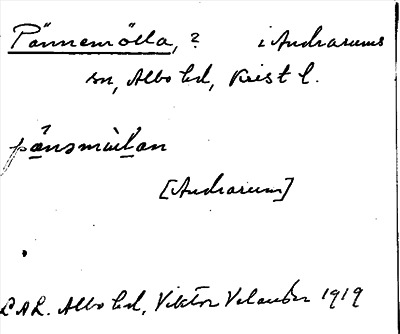 Pännemölla, ? i Andrarums
sn, Albo hd, Krist l.
pänsmölan
[Andrarum]
LAL. Albo hd, Viktor Velander 1919